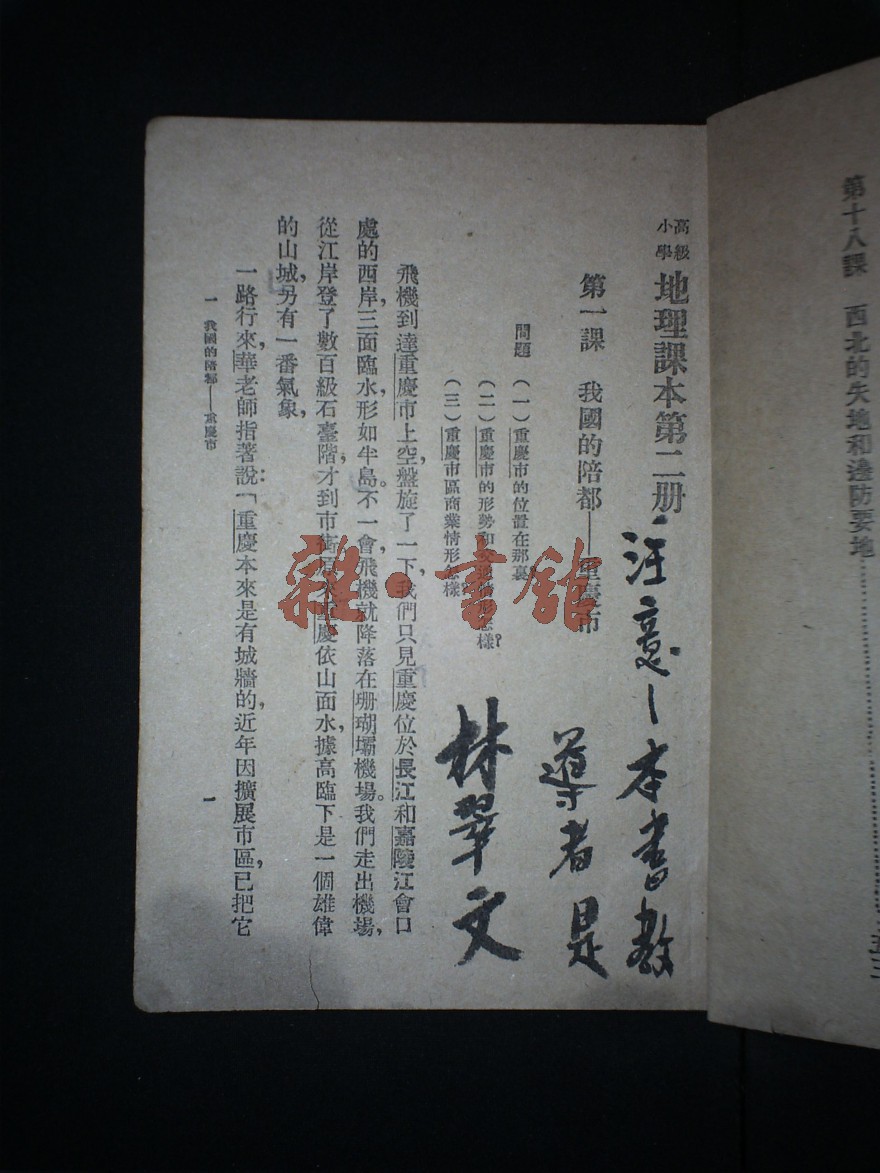 第十八課　西北的失地和邊防要地
五三
高級
小學
地理課本第二册
第一課　我國的陪都——重慶市
問題
(一)重慶市的位置在那裏
(二)重慶市的形勢和交通情形怎樣?
(三)重慶市區商業情形怎樣
飛機到達重慶市上空,盤旋了一下,我們只見重慶位於長江和嘉陵江會口
處的西岸,三面臨水,形如半島。不一會,飛機就降落在珊瑚壩機場。我們走出機場,
從江岸登了數百級石臺階,才到市街。原來重慶依山面水,據高臨下,是一個雄偉
的山城,另有一番氣象,
一路行來,華老師指著說:「重慶本來是有城牆的,近年因擴展市區,已把它
一　我國的陪都——重慶市
一
注意本書教
導者是
林翠文
雜·書館